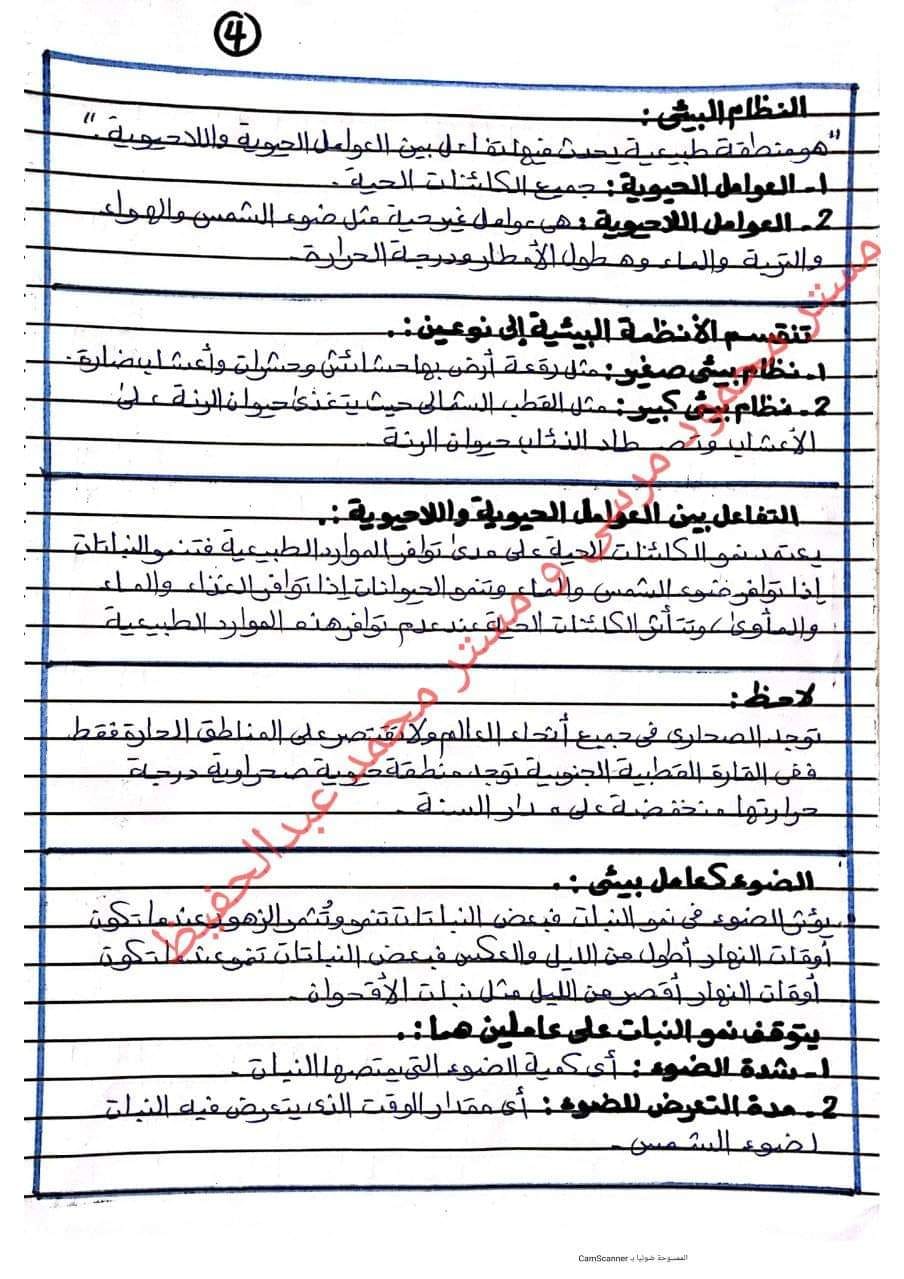 4
النظام البيئى :
"هو منطقة طبيعية يحدث فيها تفاعل بين العوامل الحيوية واللاحيوية."
1- العوامل الحيوية : جميع الكائنات الحية .
2- العوامل اللاحيوية : هى عوامل غير حية مثل ضوء الشمس والهواء
والتربة والماء وهطول الأمطار ودرجة الحرارة .
تنقسم الأنظمة البيئية إلى نوعين :.
1- نظام بيئى صغير : مثل رقعة أرض بها حشائش وحشرات وأعشاب ضارة .
2- نظام بيئى كبير : مثل القطب الشمالى حيث يتغذى حيوان الرنة على
الأعشاب وتصطاد الذئاب حيوان الرنة .
التفاعل بين العوامل الحيوية واللاحيوية :.
يعتمد نمو الكائنات الحية على مدى توافر الموارد الطبيعية فتنمو النباتات
إذا توافر ضوء الشمس والماء وتنمو الحيوانات إذا توافر الغذاء والماء
والمأوى ، وتتأثر الكائنات الحية عند عدم توافر هذه الموارد الطبيعية
لاحظ :
توجد الصحارى فى جميع أنحاء العالم ولا تقتصر على المناطق الحارة فقط
ففى القارة القطبية الجنوبية توجد منطقة حيوية صحراوية درجة
حرارتها منخفضة على مدار السنة .
الضوء كعامل بيئى :.
يؤثر الضوء فى نمو النبات فبعض النباتات تنمو وتُثمر الزهور عندما تكون
أوقات النهار أطول من الليل والعكس فبعض النباتات تنمو عندما تكون
أوقات النهار أقصر من الليل مثل نبات الأقحوان .
يتوقف نمو النبات على عاملين هما :.
1- شدة الضوء : أى كمية الضوء التى يمتصها النبات .
2- مدة التعرض للضوء : أى مقدار الوقت الذى يتعرض فيه النبات
لضوء الشمس .
مستر محمود مرسى و مستر محمد عبدالحفيظ
الممسوحة ضوئيا بـ CamScanner